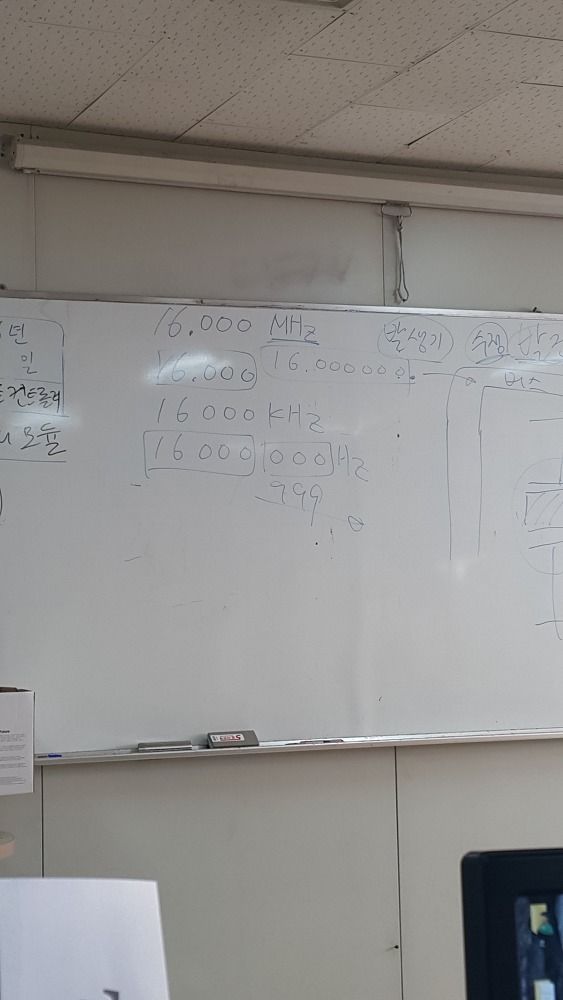 년
일
컨트롤러
모듈
16.000 MHz
16.000 16.0000000
16000 KHz
16000 000 Hz
999
발생기
수정
버스